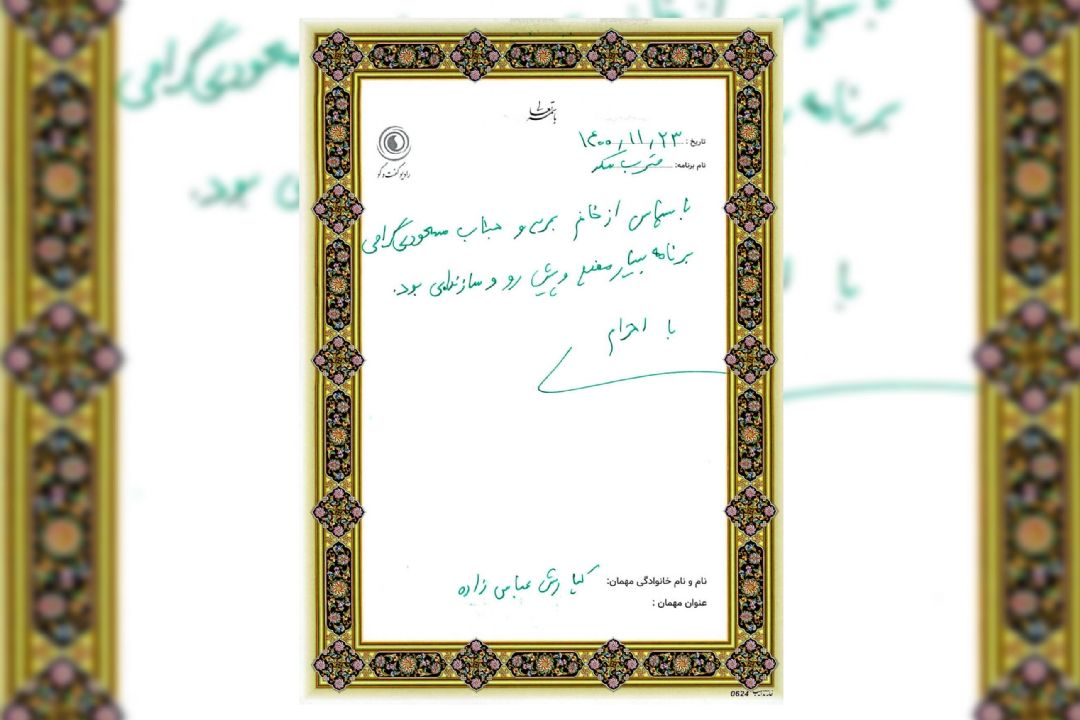 باسمه تعالی
تاریخ: ۱۴۰۰,۱۱,۲۳
رادیو گفت و گو
نام برنامه:
با سپاس از خانم و جناب مسعودی گرامی
برنامه بسیار مفید و پیش رو و سازنده‌ای بود.
با احترام
نام و نام خانوادگی مهمان: کیا رش عباس زاده
عنوان مهمان :
0624